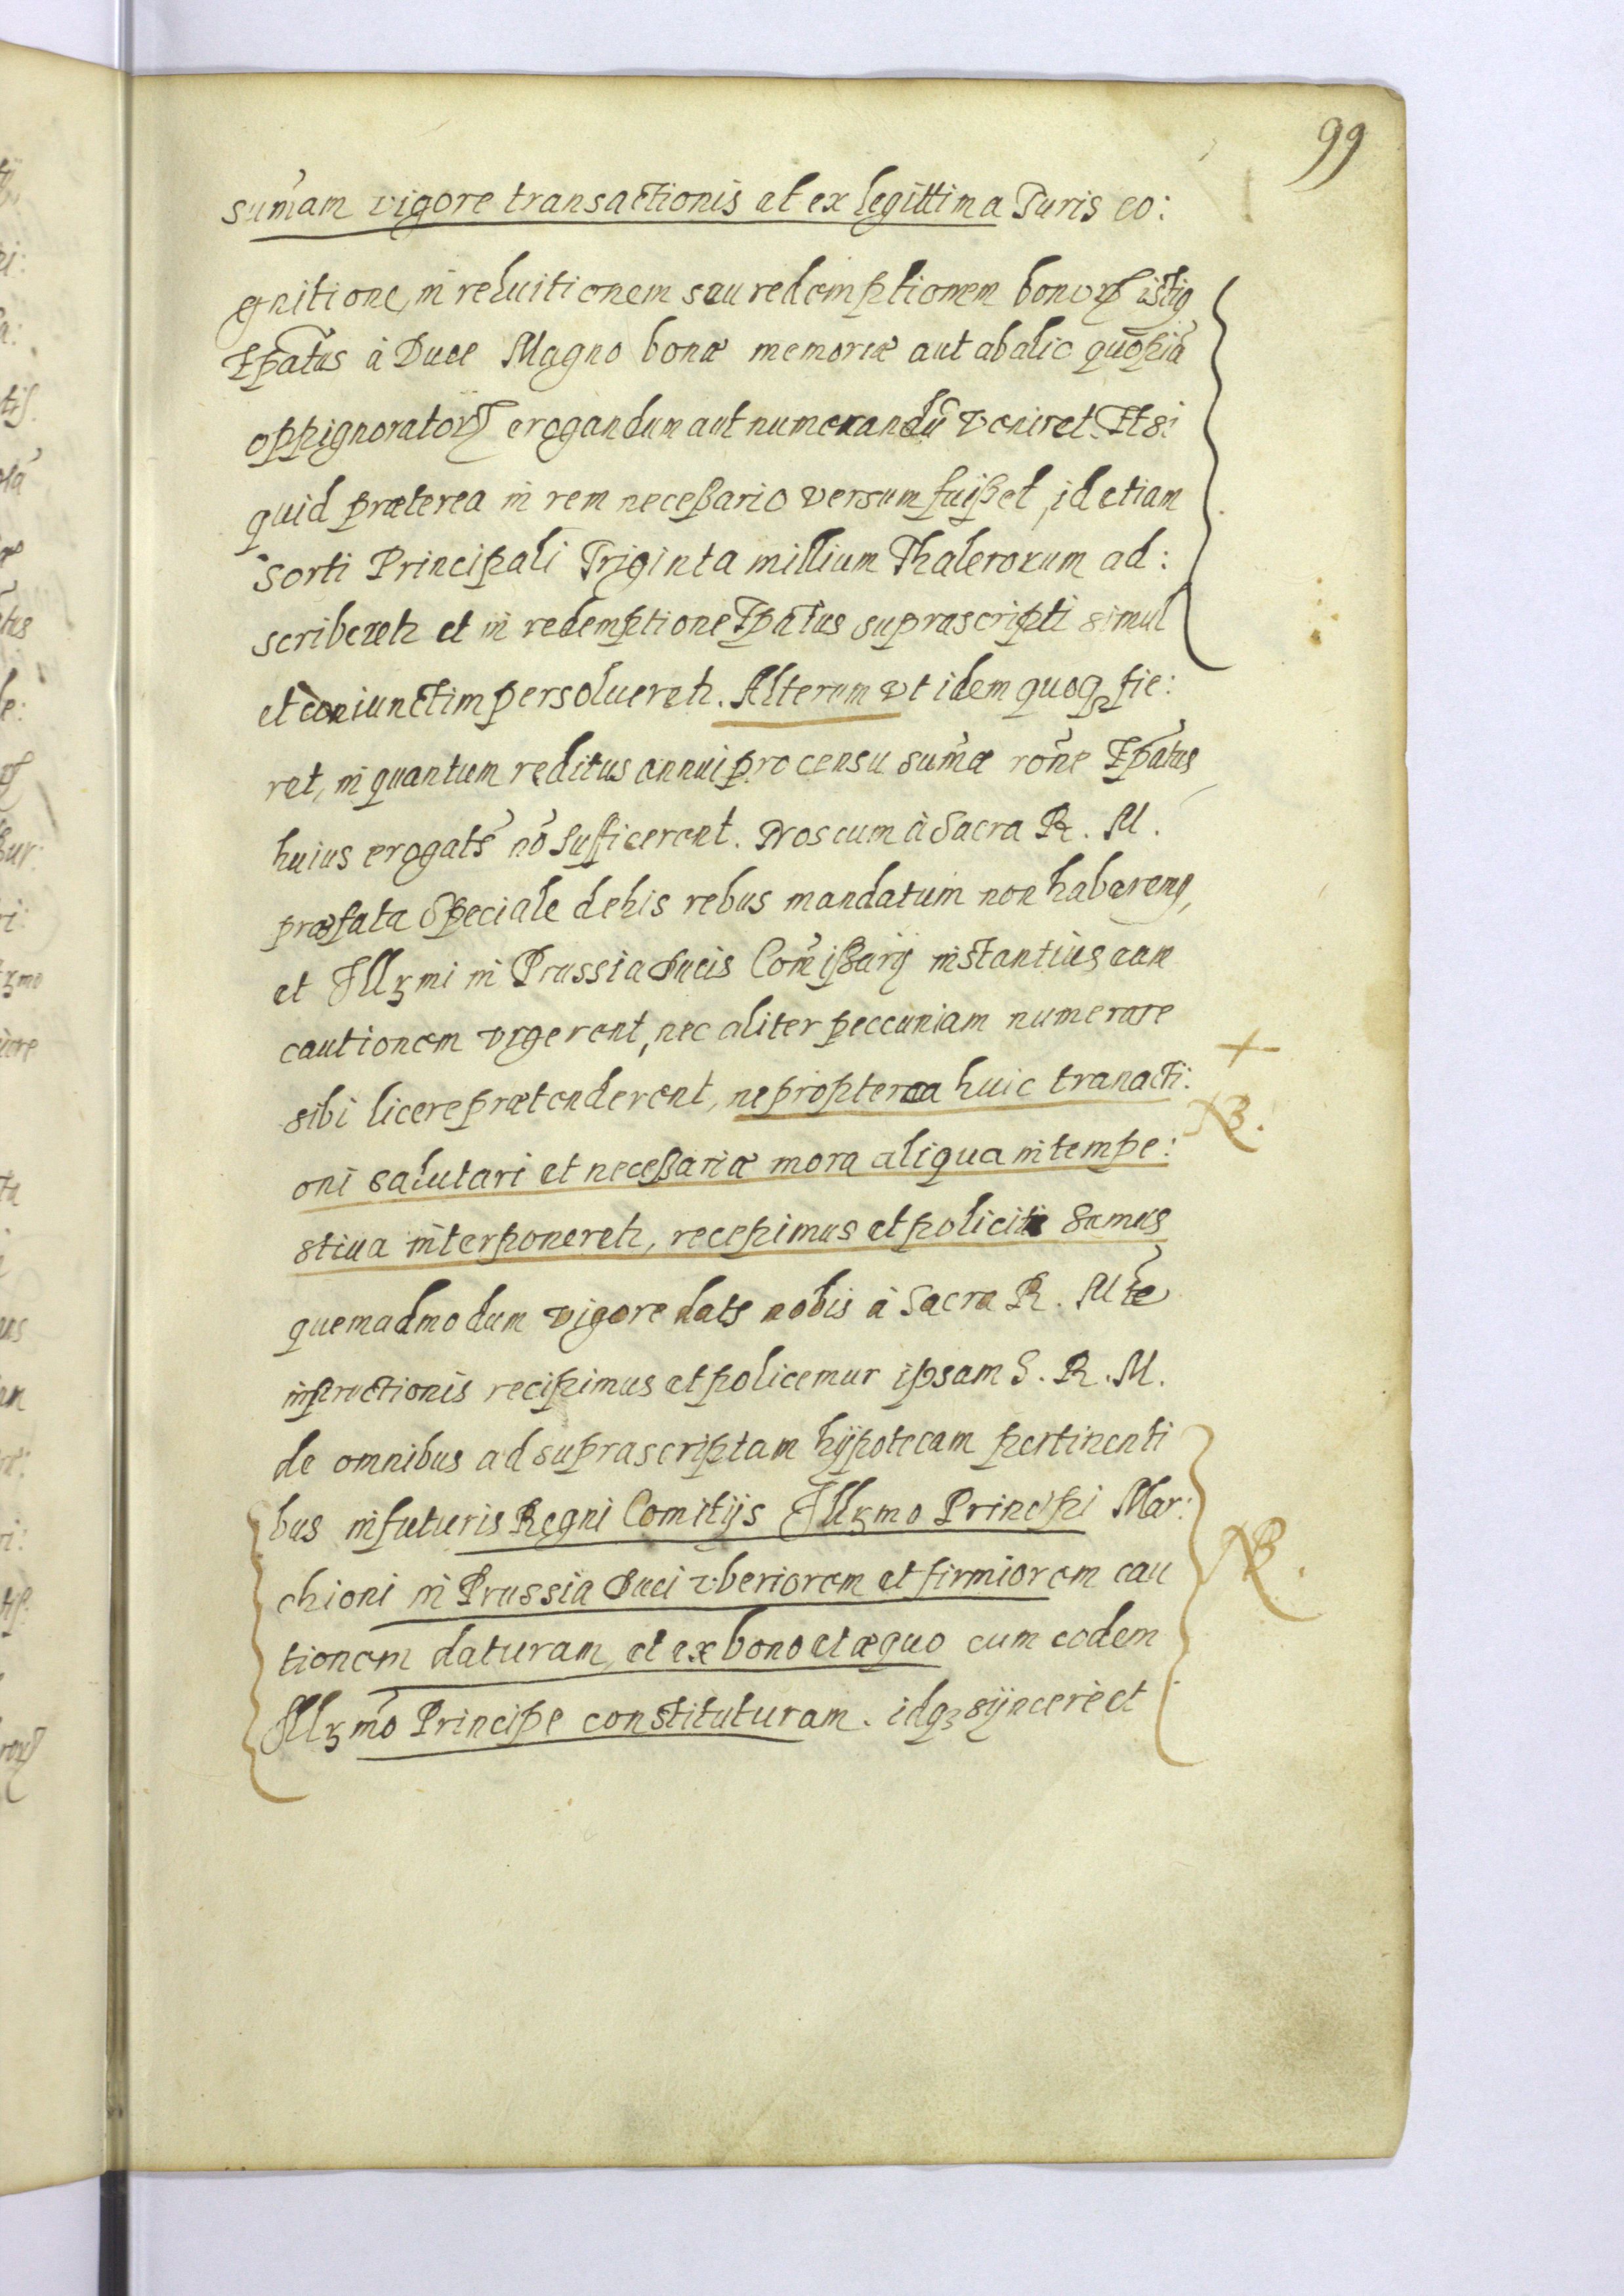 99
sum̃am vigore transactionis et ex legittima Juris co:
gnitione, in reluitionem seu redemptionem bonorꝝ istiꝰ
Ep̃atus à Duce Magno bonæ memoriæ aut ab alio quopiã
oppignoratorꝝ erogandum aut numerandũ veniret. Et si
quid præterea in rem neceßario versum fuißet, id etiam
sorti Principali Triginta millium Thalerorum ad:
scriberetr et in redemptione Ep̃atus suprascripti simul
et coniunctim persolueretr. Alterum vt idem quoqꝫ fie:
ret, in quantum reditus annui pro censu sum̃æ rõne Ep̃atus
huius erogatę nõ sufficerent. Nos cum à Sacra R. M.
præfata Speciale de his rebus mandatum non haberemꝰ,
et Illꝫmi in Prussia Ducis Com̃ißarij instantius eam
cautionem vrgerent, nec aliter peccuniam numerare
sibi licere prætenderent, ne propterea huic tranacti:
oni salutari et neceßariæ mora aliqua intempe:
stiua interponeretr, recepimus et policiti sumus
quemadmodum vigore datę nobis à Sacra R. Mte
instructionis recipimus et policemur ipsam S. R. M.
de omnibus ad suprascriptam hÿpotecam pertinenti
bus in futuris Regni Comitijs Illꝫmo Principi Mar:
chioni in Prussia Duci vberiorem et firmiorem cau
tionem daturam, et ex bono et æquo cum eodem
Illꝫmo Principe constituturam. idqꝫ sÿncerè et
+
NB.
NB.